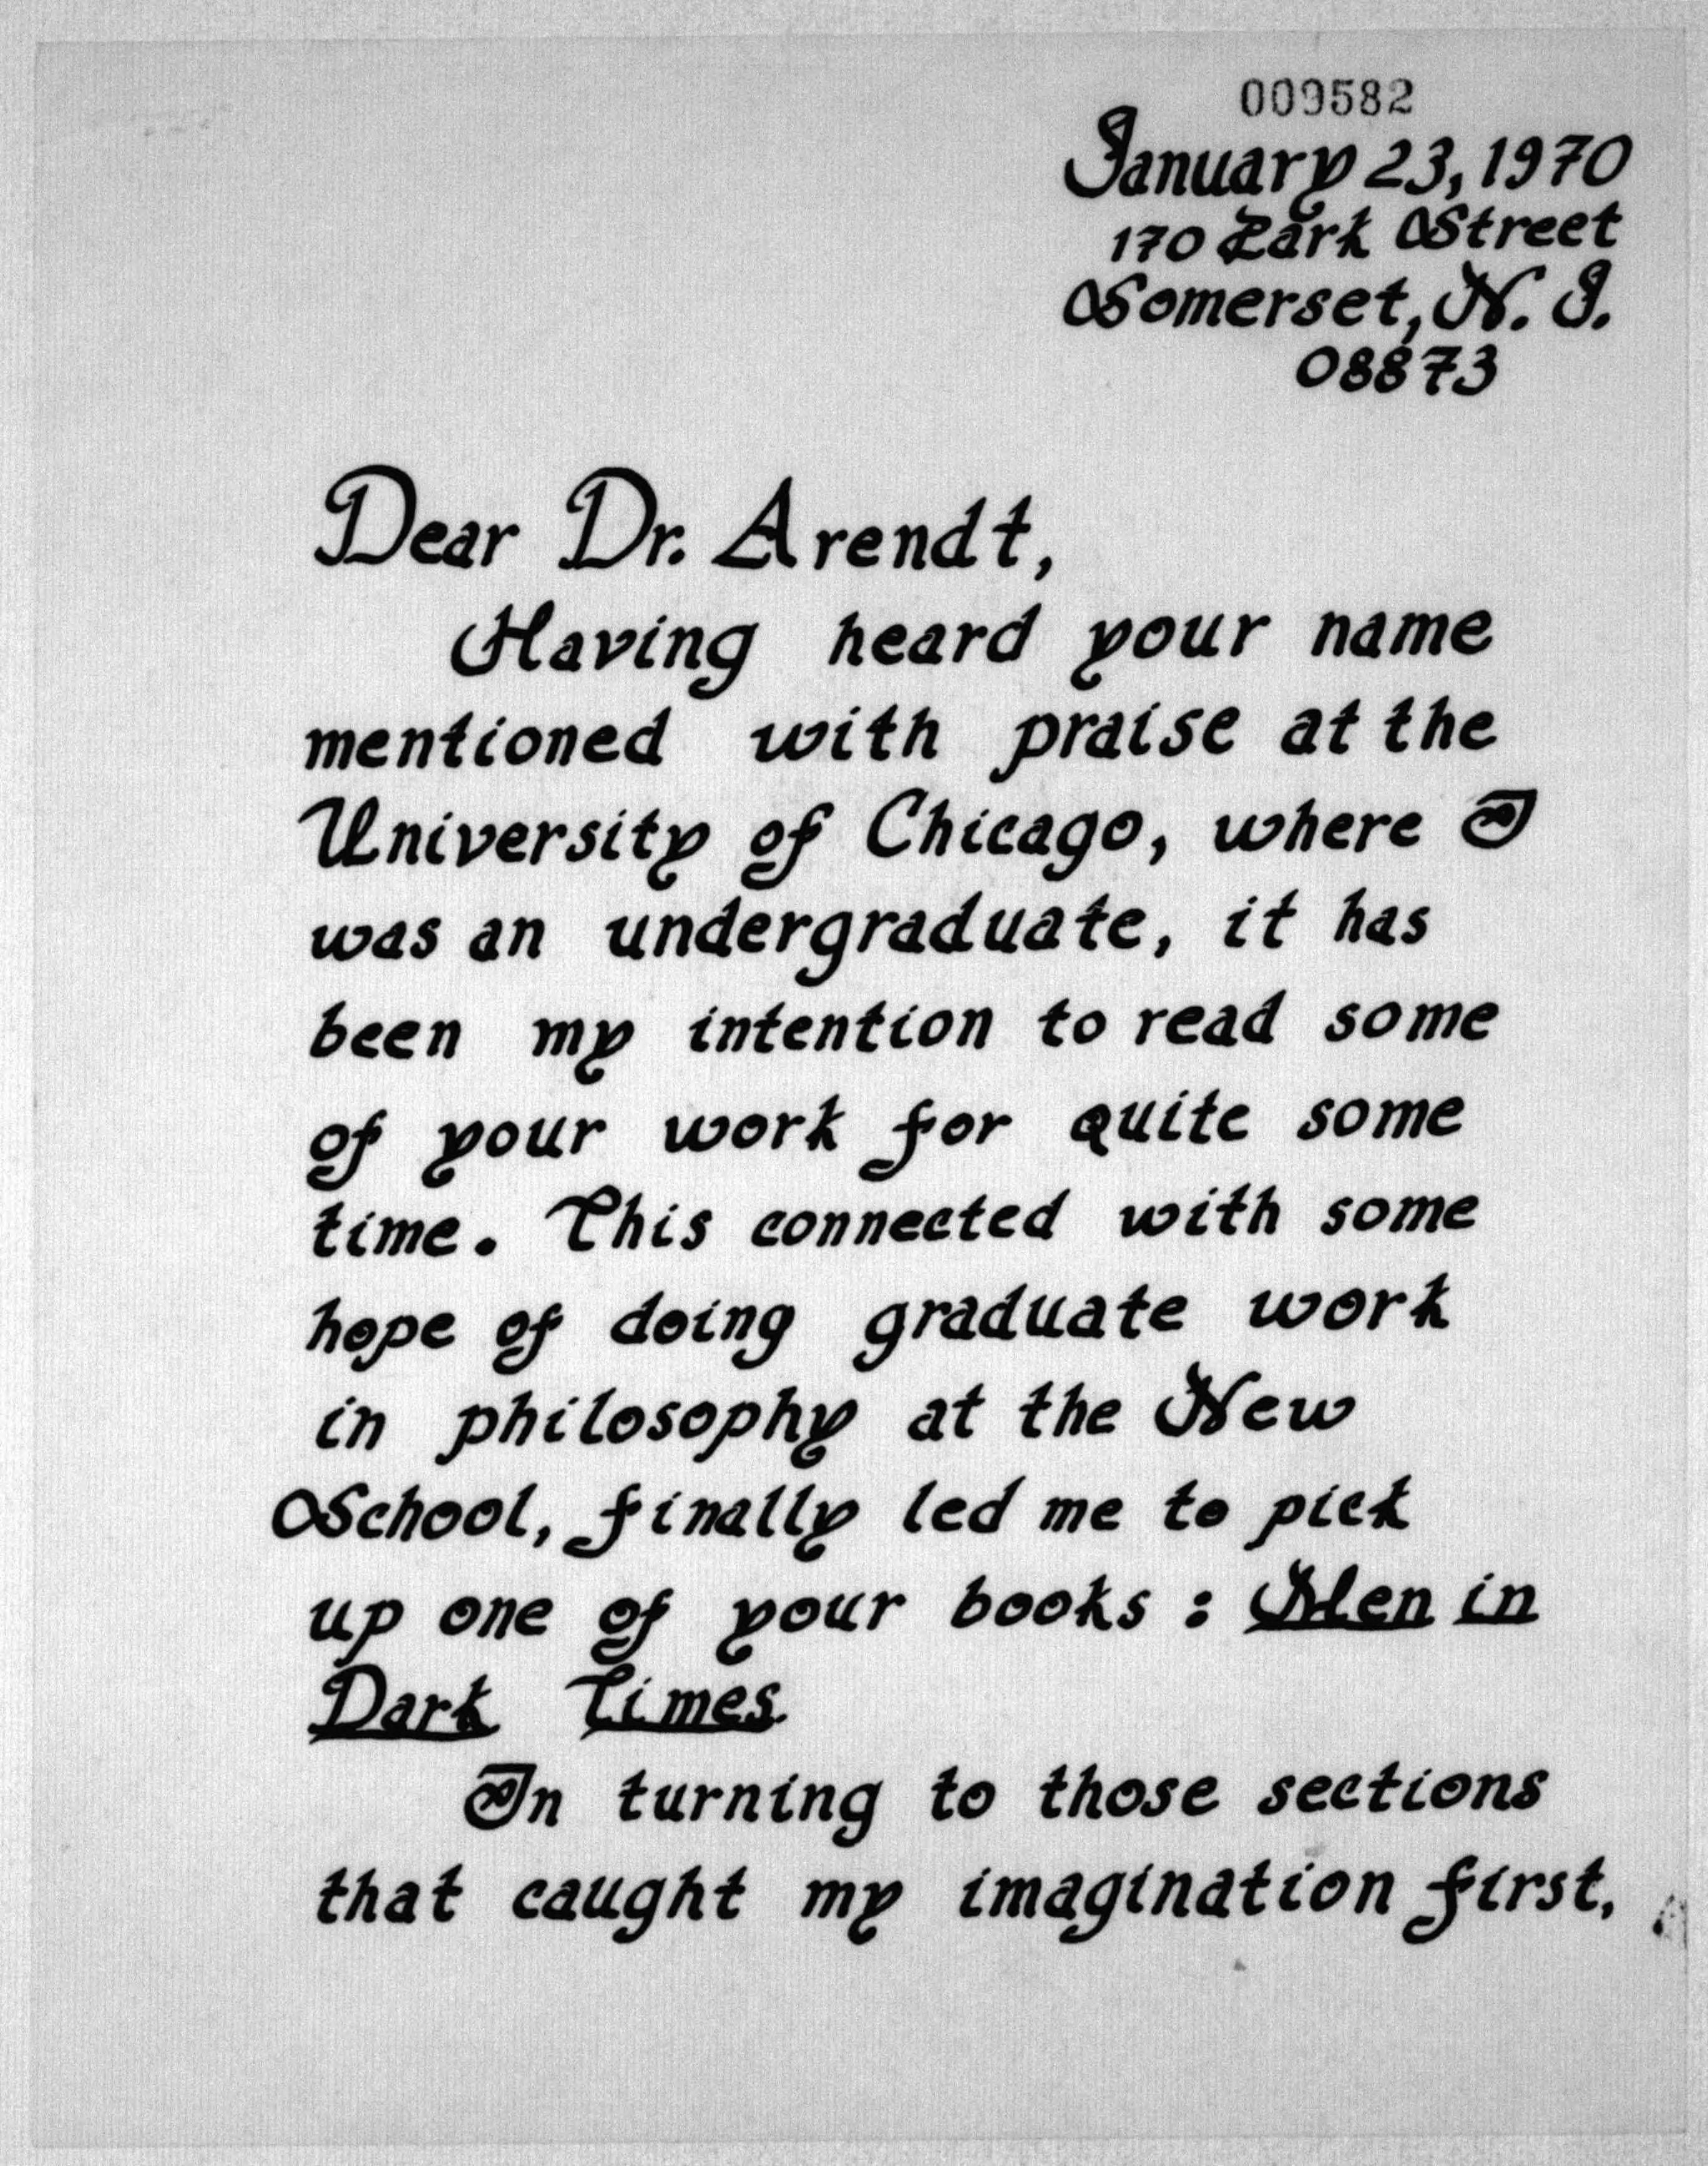 009582
January 23, 1970
170 Park Street
Somerset, N. J.
08873
Dear Dr. Arendt,
Having heard your name
mentioned with praise at the
University of Chicago, where I
was an undergraduate, it has
been my intention to read some
of your work for quite some
time. This connected with some
hope of doing graduate work
in philosophy at the New
School, finally led me to pick
up one of your books : Men in
Dark Times.
In turning to those sections
that caught my imagination first,